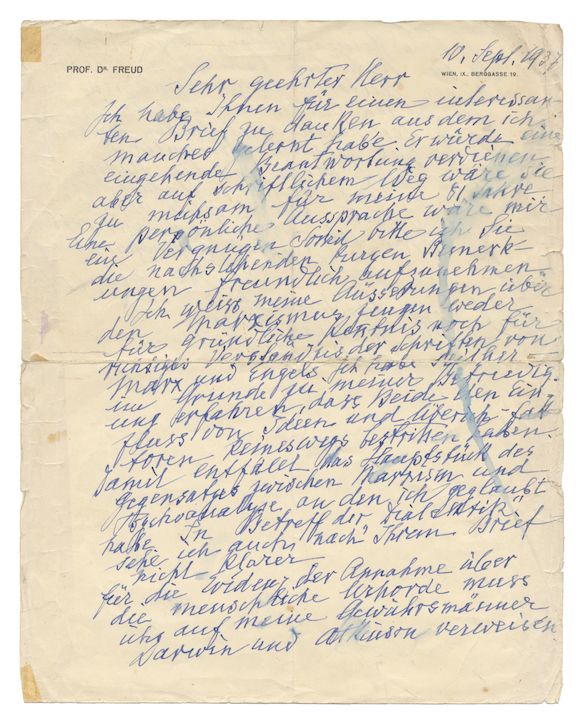 PROF. DR. FREUD
10. Sept. 1937
WIEN, IX., BERGGASSE 19.
Sehr geehrter Herr
Ich habe Ihnen für einen interessan-
ten Brief zu danken aus dem ich
manches gelernt habe. Er würde eine
eingehende Beantwortung verdienen
aber auf schriftlichem Weg wäre sie
zu mühsam für meine 81 Jahre
Eine persönliche Aussprache wäre mir
ein Vergnügen Soviel bitte ich Sie
die nachstehenden kurzen Bemerk
ungen freundlich aufzunehmen.
Ich weiss meine Äusserungen über
den Marxismus zeugen weder
für gründliche Kentnis noch für
richtiges Verständnis der Schriften von
Marx und Engels. Ich habe seither
im Grunde zu meiner Befriedig-
ung erfahren, dass Beide den Ein
fluss von Ideen und Überich-fak
toren keineswegs bestritten haben.
Damit entfällt das Hauptstück des
Gegensatzes zwischen Marxism und
Psychoanalyse an den ich geglaubt
habe. In Betreff der "Dialektik"
sehe ich auch nach Ihrem Brief
nicht klarer
für die Evidenz der Annahme über
die menschliche Urhorde muss
ich auf meine Gewährsmänner
Darwin und Atkinson verweisen.